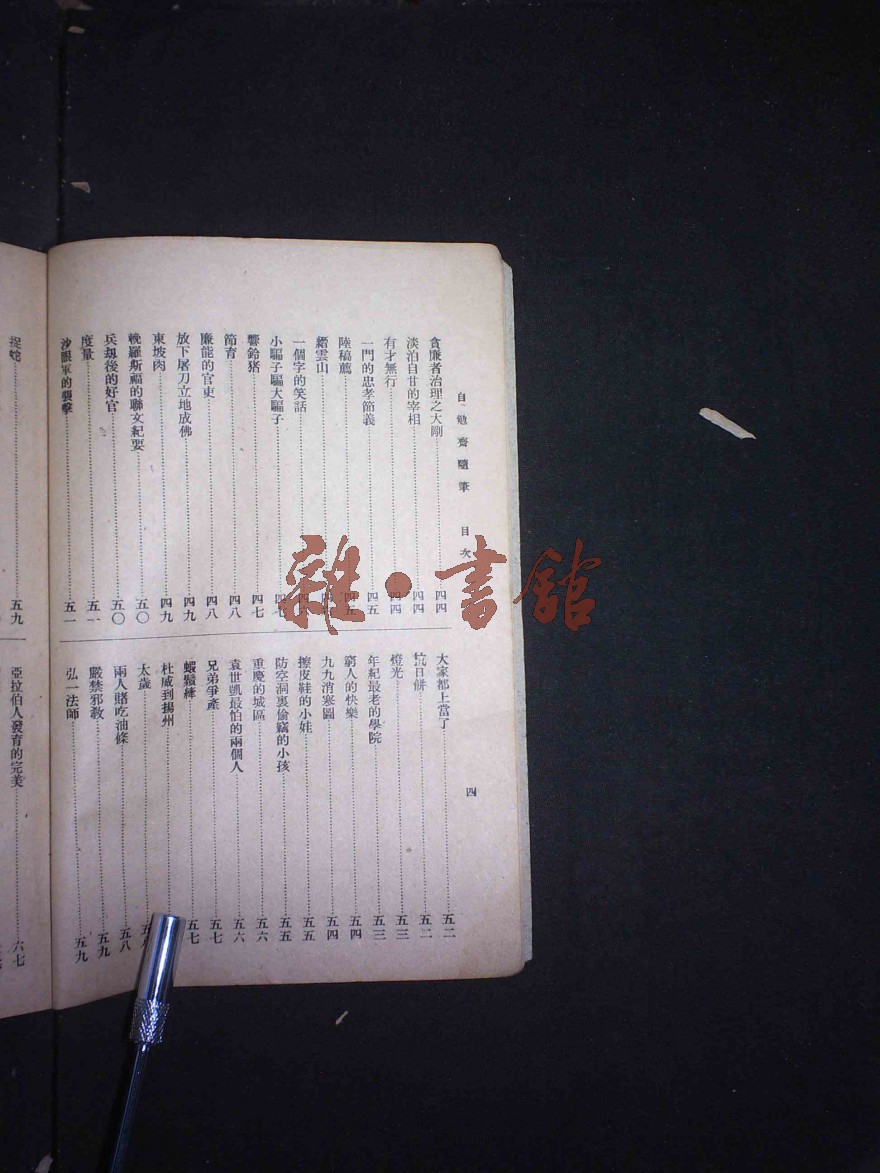 自勉齋隨筆 目次
四
貪廉者治理之大剛 四四
淡泊自甘的宰相 四四
有才無行 四四
一門的忠孝節義 四五
陸稿薦 四五
縉雲山
一個字的笑話
小騙子騙大騙子
響鈴猪 四七
節育 四八
廉能的官吏 四八
放下屠刀立地成佛 四九
東坡肉 四九
輓羅斯福的聯文紀要 五〇
兵刼後的好官 五〇
度量 五一
沙眼軍的襲擊 五一
大家都上當了 五二
抗日餅 五二
燈光 五三
年紀最老的學院 五三
窮人的快樂 五四
九九消寒圖 五四
擦皮鞋的小娃 五五
防空洞裏偷竊的小孩 五五
重慶的城區 五六
袁世凱最怕的兩個人 五六
兄弟爭產 五七
蝦鬚絳 五七
杜威到揚州
太歲
兩人賭吃油條 五八
嚴禁邪教 五九
弘一法師 五九
捉蛇 五九
亞拉伯人發育的完美 六七
雜·書館